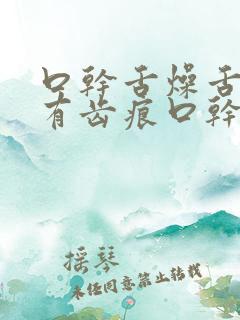 口幹舌燥舌
有齿痕口幹
摇琴
未经同意禁止转载